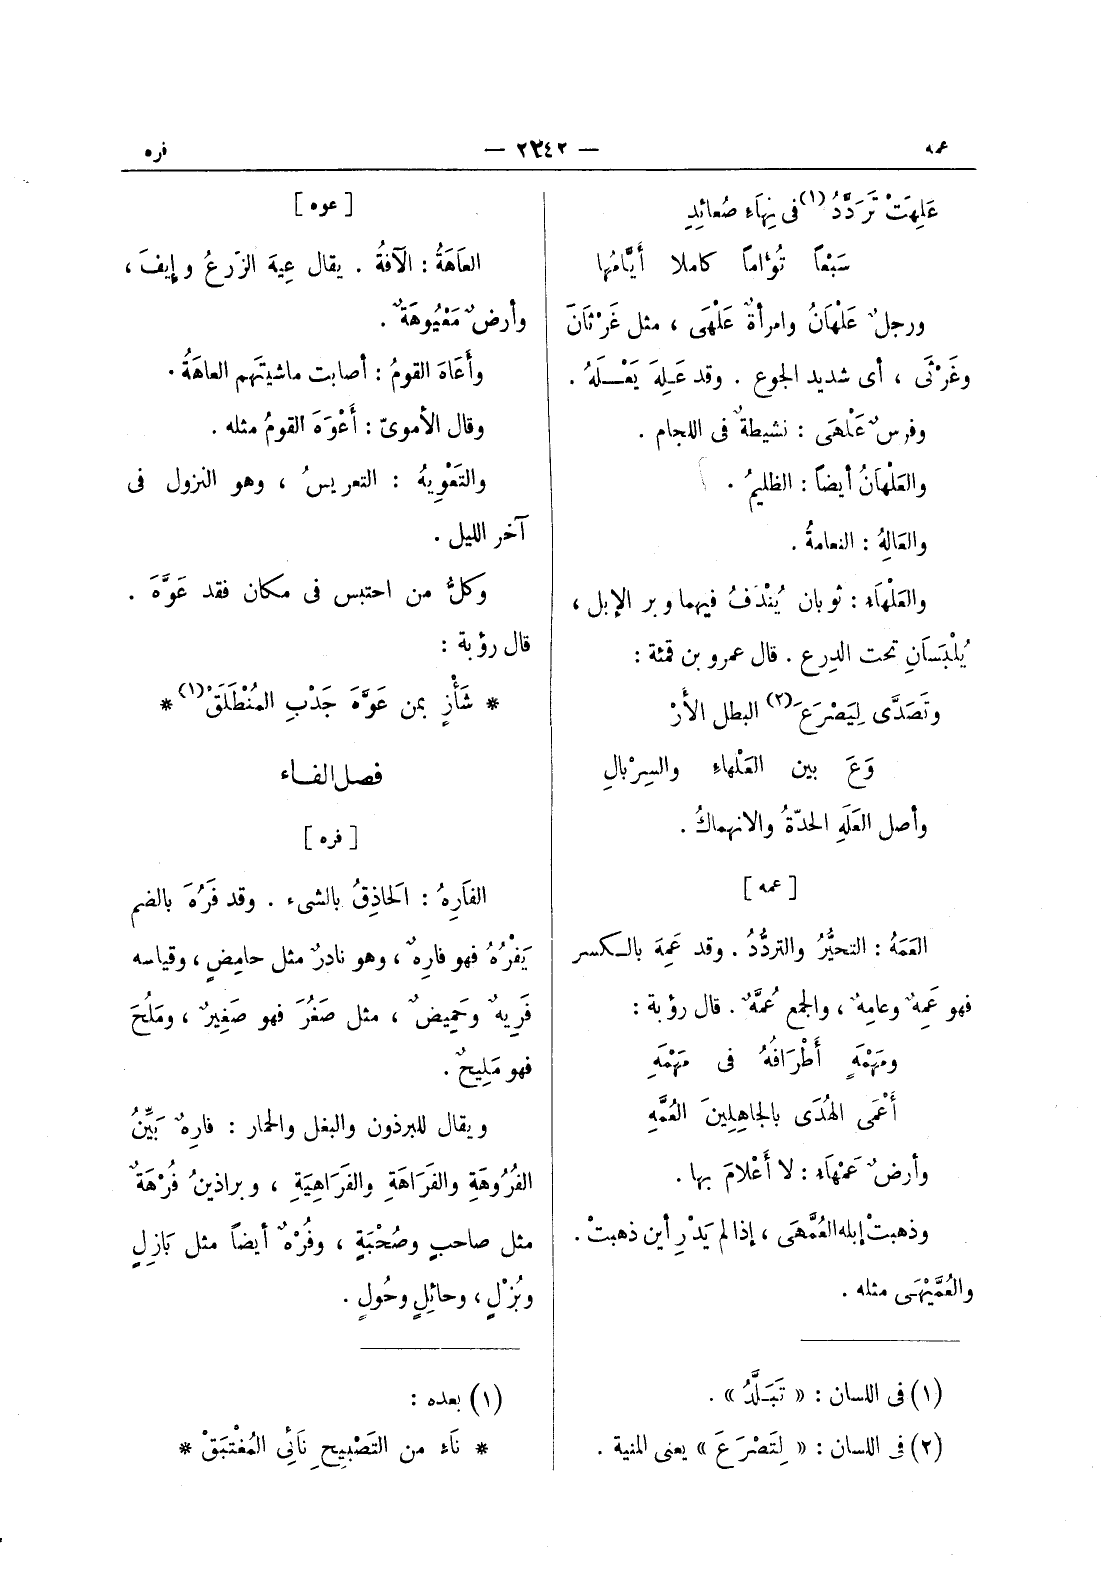 عمه — ٢٢٤٢ — فره
عَلِهَتْ تَرَدَّدُ (١) فى نِهَاءِ صُعَائِدِ
سَبْعاً تُؤاماً كاملا أَيَّامُها
ورجلٌ عَلْهَانُ وامرأةٌ عَلْهَى ، مثل غَرْثَانَ
وغَرْثَى ، أى شديد الجوع . وقد عَلِهَ يَعْلَهُ .
وفرسٌ عَلْهَى : نشيطةٌ فى اللجام .
والعَلْهَانُ أيضاً : الظليمُ .
والعَالِهُ : النعامةُ .
والعَلْهَاءِ : ثوبان يُنْدَفُ فيهما وبر الإبل ،
يُلْبَسَانِ تحت الدِرع . قال عمرو بن قمئة :
وتَصَدَّى لِيَصْرَعَ (٢) البطل الأَرْ
وَعَ بين العَلْهاءِ والسِرْبالِ
وأصل العَلَهِ الحدّةُ والانهماكُ .
[ عمه ]
العَمَهُ : التحيُّرُ والتردُّدُ . وقد عَمِهَ بالكسر
فهو عَمِهٌ وعامِهٌ ، والجمع عُمَّهٌ . قال رؤبة :
ومَهْمَهٍ أَطْرَافُهُ فى مَهْمَهِ
أَعْمَى الهُدَى بالجاهِلِينَ العُمَّهِ
وأرضٌ عَمْهَاءِ : لا أَعْلامَ بها .
وذهبتْ إبله العُمَّهَى ، إذا لم يَدْرِ أين ذهبتْ .
والعُمَّيْهَى مثله .
(١) فى اللسان : « تَبَلَّدُ » .
(٢) فى اللسان : « لِتَصْرَعَ » يعنى المنية .
[ عوه ]
العَاهَةُ : الآفةُ . يقال عِيهَ الزَرعُ وإيفَ ،
وأرضٌ مَعْيُوهَةٌ .
وأَعَاهَ القومُ : أصابت ماشيتَهم العاهَةُ .
وقال الأموىّ : أَعْوَهَ القومُ مثله .
والتَعْوِيهُ : التعريسُ ، وهو النزول فى
آخر الليل .
وكلُّ من احتبس فى مكان فقد عَوَّهَ .
قال رؤبة :
* شَأْزٍ بمن عَوَّهَ جَدْبِ المُنْطَلَقْ (١) *
فصل الفاء
[ فره ]
الفَارِهُ : الحَاذِقُ بالشىء . وقد فَرُهَ بالضم
يَفْرُهُ فهو فارِهٌ ، وهو نادرٌ مثل حامِضٍ ، وقياسه
فَرِيهٌ وحَمِيضٌ ، مثل صَغُرَ فهو صَغِيرٌ ، ومَلُحَ
فهو مَلِيحٌ .
ويقال للبرذون والبغل والحمار : فارِهٌ بَيِّنُ
الفُرُوهَةِ والفَرَاهَةِ والفَرَاهِيَةِ ، وبراذينُ فُرْهَةٌ
مثل صاحبٍ وصُحْبَةٍ ، وفُرْهٌ أيضاً مثل بَازِلٍ
وبُزْلٍ ، وحائِلٍ وحُولٍ .
(١) بعده :
* نَاءِ من التَصْبِيحِ نَائِى المُغْتَبَقْ *